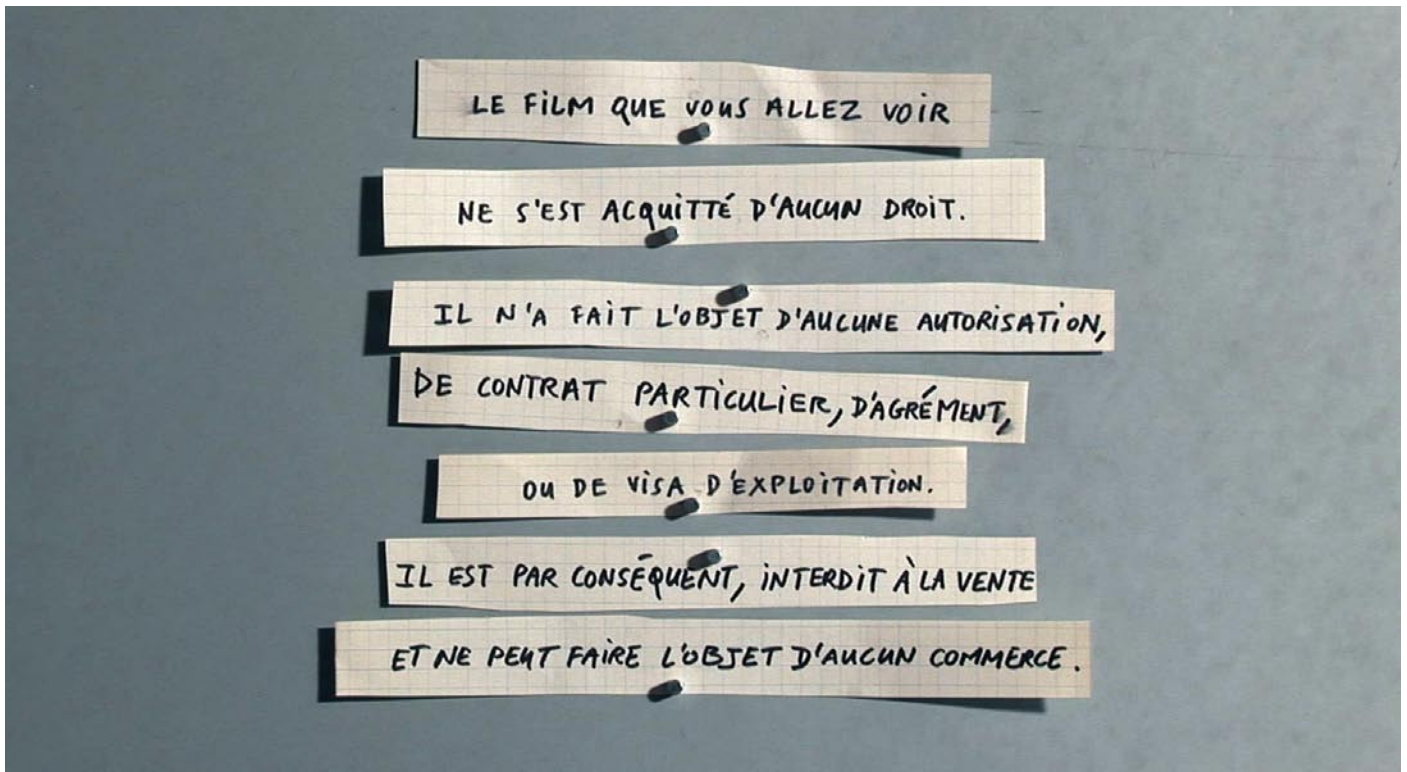 LE FILM QUE VOUS ALLEZ VOIR
NE S'EST ACQUITTÉ D'AUCUN DROIT.
IL N'A FAIT L'OBJET D'AUCUNE AUTORISATION,
DE CONTRAT PARTICULIER, D'AGRÉMENT,
OU DE VISA D'EXPLOITATION.
IL EST PAR CONSÉQUENT, INTERDIT À LA VENTE
ET NE PEUT FAIRE L'OBJET D'AUCUN COMMERCE.